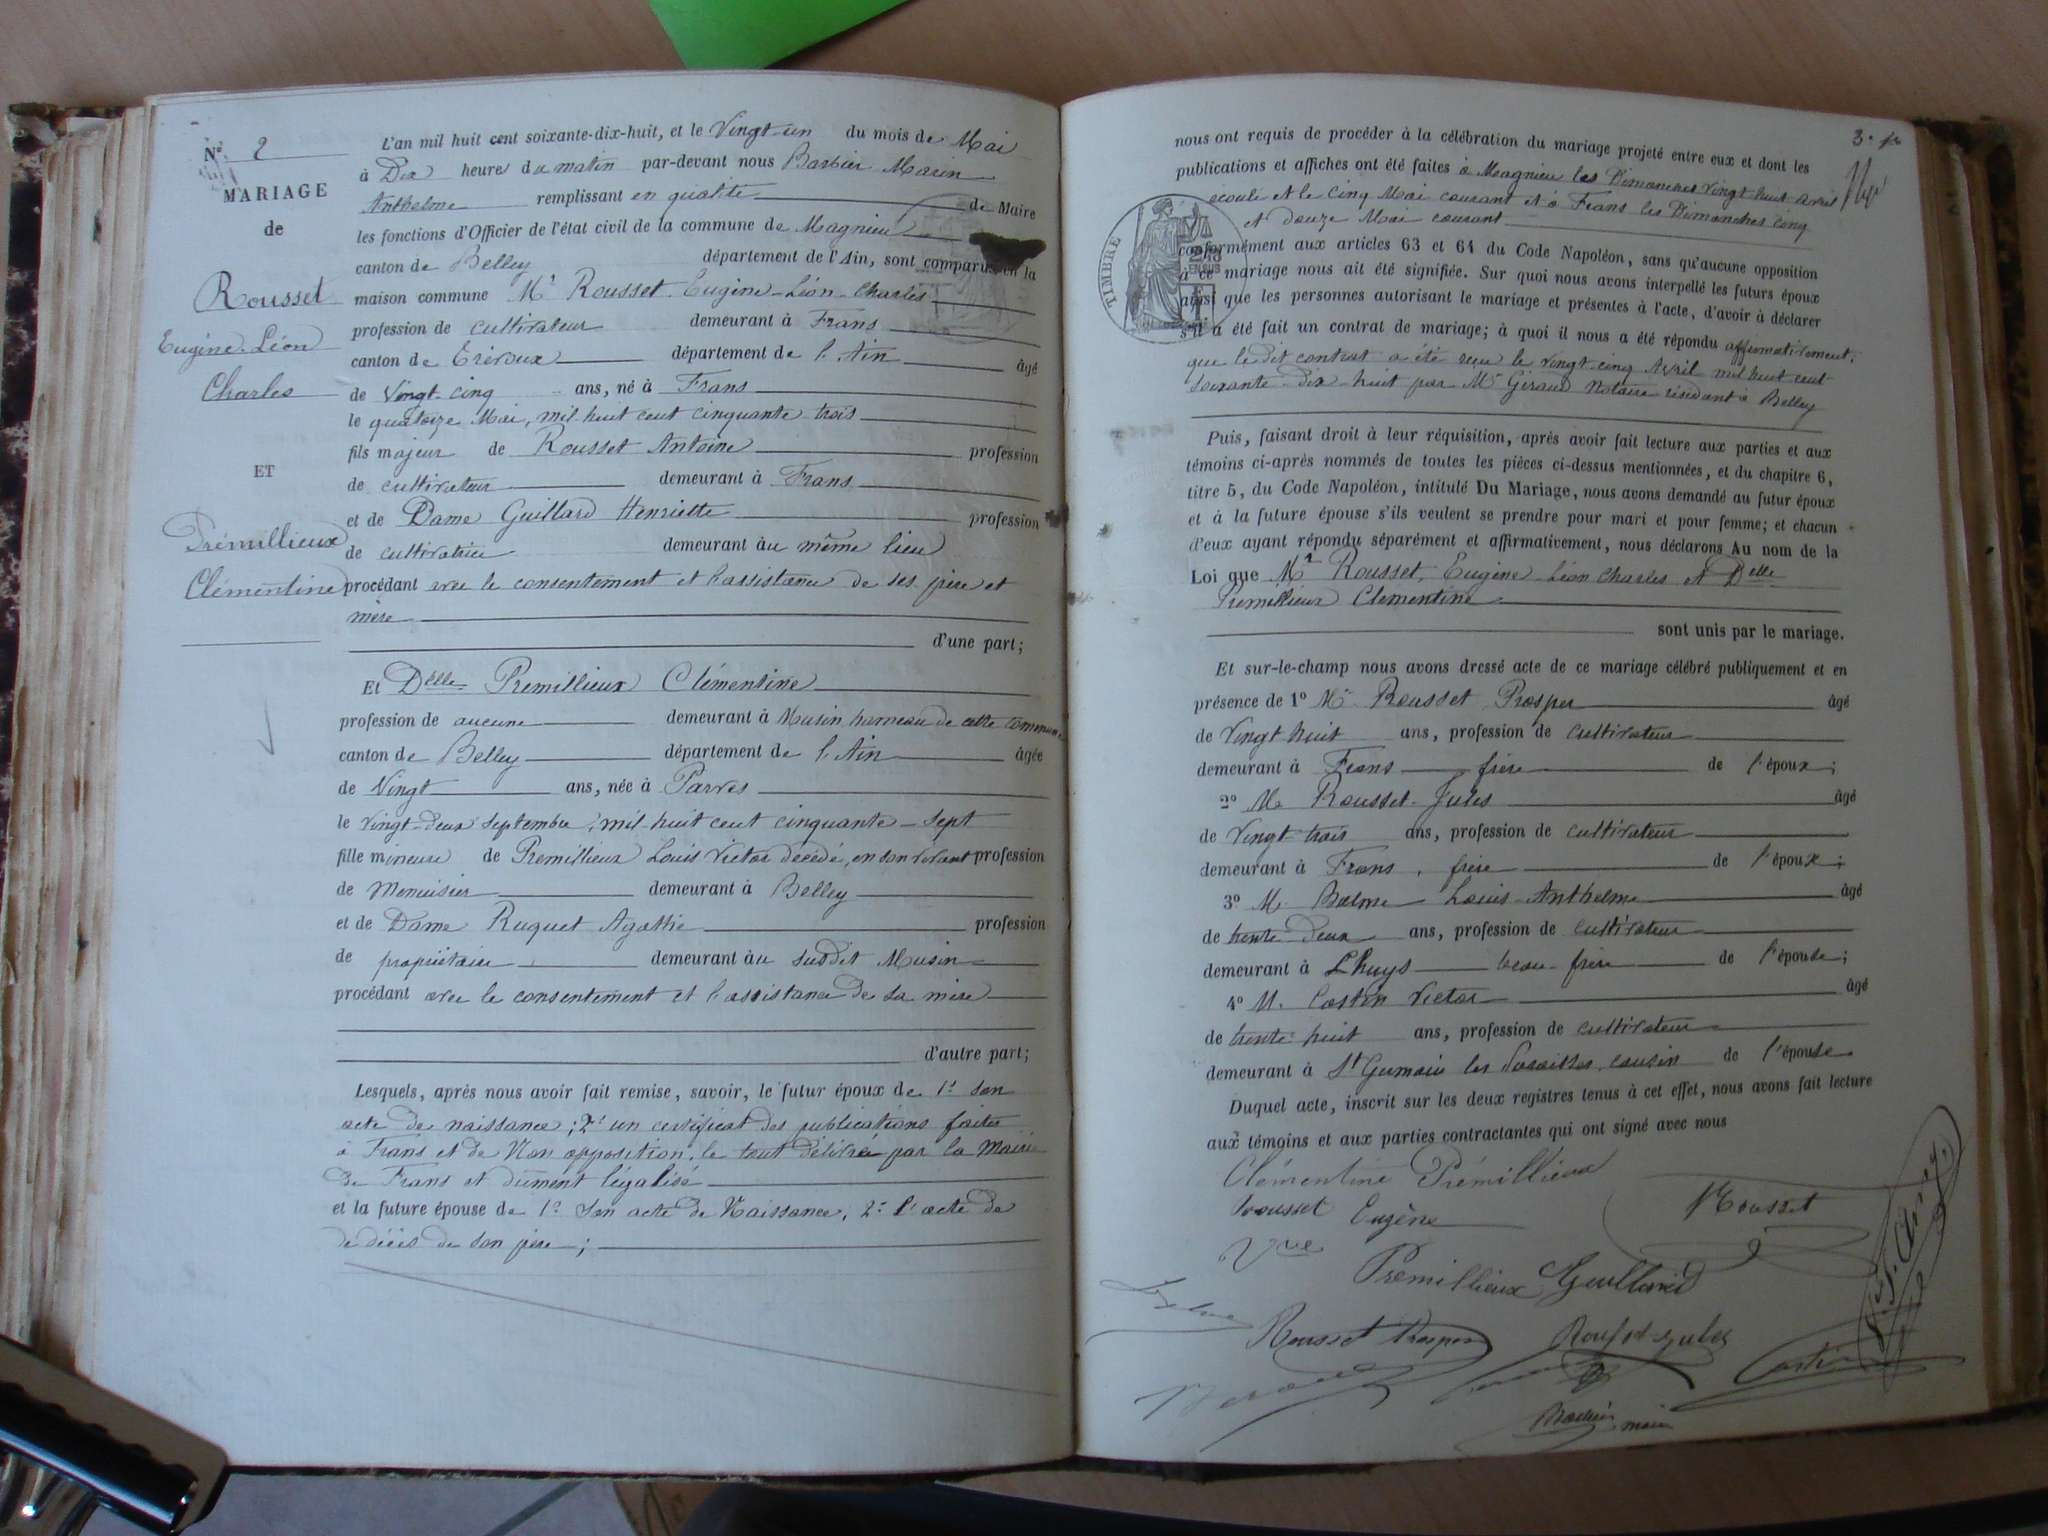 N° 2
MARIAGE
de
Rousset
Eugène-Léon
Charles
ET
Prémillieux
Clémentine
L'an mil huit cent soixante-dix-huit, et le Vingt-un du mois de Mai
à Dix heures du matin par-devant nous Barbier Marin
Anthelme remplissant en qualité de Maire
les fonctions d'Officier de l'état civil de la commune de Magnieu
canton de Belley département de l'Ain, sont comparus en la
maison commune Mr Rousset Eugène-Léon-Charles
profession de cultivateur demeurant à Frans
canton de Trévoux département de l'Ain âgé
de Vingt-cinq ans, né à Frans
le quatorze Mai, mil huit cent cinquante trois
fils majeur de Rousset Antoine profession
de cultivateur demeurant à Frans
et de Dame Guillard Henriette profession
de cultivatrice demeurant au même lieu
procédant avec le consentement et l'assistance de ses père et
mère
d'une part;
Et Delle Premillieux Clémentine
profession de aucune demeurant à Musin hameau de cette commune
canton de Belley département de l'Ain âgée
de Vingt ans, née à Parves
le vingt-deux septembre, mil-huit cent cinquante-sept
fille mineure de Premillieux Louis Victor décédé, en son vivant profession
de Menuisier demeurant à Belley
et de Dame Ruquet Agathe profession
de propriétaire demeurant au susdit Musin
procédant avec le consentement et l'assistance de sa mère
d'autre part;
Lesquels, après nous avoir fait remise, savoir, le futur époux de 1° son
acte de naissance; 2° un certificat des publications faites
à Frans et de Non opposition, le tout délivré par la Mairie
de Frans et dûment légalisé
et la future épouse de 1° Son acte de Naissance, 2° l'acte de
de décès de son père;
3.
nous ont requis de procéder à la célébration du mariage projeté entre eux et dont les
publications et affiches ont été faites à Magnieu les Dimanches vingt huit avril
écoulé et le cinq Mai courant et à Frans les Dimanches cinq
et douze Mai courant
TIMBRE
conformément aux articles 63 et 64 du Code Napoléon, sans qu'aucune opposition
à ce mariage nous ait été signifiée. Sur quoi nous avons interpellé les futurs époux
ainsi que les personnes autorisant le mariage et présentes à l'acte, d'avoir à déclarer
s'il a été fait un contrat de mariage; à quoi il nous a été répondu affirmativement,
que le dit contrat a été reçu le vingt cinq Avril mil huit cent
soixante-dix-huit par Me Giraud Notaire résidant à Belley
Puis, faisant droit à leur réquisition, après avoir fait lecture aux parties et aux
témoins ci-après nommés de toutes les pièces ci-dessus mentionnées, et du chapitre 6,
titre 5, du Code Napoléon, intitulé Du Mariage, nous avons demandé au futur époux
et à la future épouse s'ils veulent se prendre pour mari et pour femme; et chacun
d'eux ayant répondu séparément et affirmativement, nous déclarons Au nom de la
Loi que Mr Rousset, Eugène-Léon Charles et Delle
Premillieux Clementine
sont unis par le mariage.
Et sur-le-champ nous avons dressé acte de ce mariage célébré publiquement et en
présence de 1° Mr Rousset Prosper âgé
de Vingt huit ans, profession de cultivateur
demeurant à Frans frère de l'époux;
2° M. Rousset Jules âgé
de Vingt trois ans, profession de cultivateur
demeurant à Frans, frère de l'époux;
3° M. Balme Louis-Anthelme âgé
de trente-deux ans, profession de cultivateur
demeurant à Lhuys beau-frère de l'épouse;
4° M. Costin Victor âgé
de trente huit ans, profession de cultivateur
demeurant à St Germain les Paroisses cousin de l'épouse
Duquel acte, inscrit sur les deux registres tenus à cet effet, nous avons fait lecture
aux témoins et aux parties contractantes qui ont signé avec nous
Clémentine Prémillieux
Rousset Eugène
Rousset
Vve Premillieux
Guillard
Rousset Prosper
Rousset Jules
Costin
Barbier maire